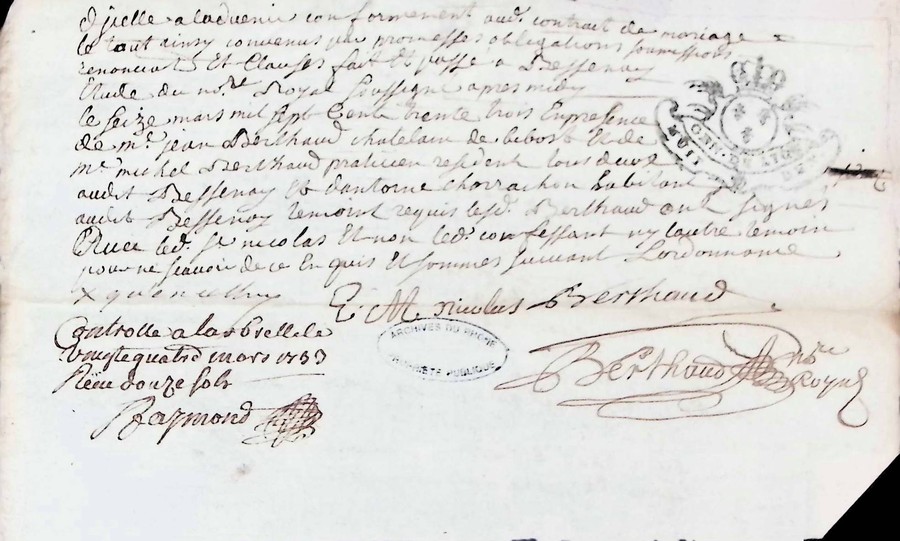 d'icelle a ladvenir conformement aud. contrat de mariage
le tout ainsy convenus par promesses obligations soumissions
renonciaōs Et Clauses fait et passé a Bessenay
Etude du no.re Royal soussigné apres midy
le seize mars mil sept Cents trente trois En presence
de m.e jean Berthaud chatelain de Et de
m.e michel Berthaud praticien resident tous deux
audit Bessenay Et d'antoine habitant
audit Bessenay temoins requis lesd. Berthaud ont signes
Avec led. S.r nicolas Et non led. confessant ny lautre temoin
pour ne scavoir de ce Enquis Et sommes suivant L'ordonnance
E. M. nicolas Berthaud
Controllé a larbrelle le
vingtequatre mars 1733
Receu douze sols
Raymond
Berthaud No.re Royal
GEN. DE LYON
ARCHIVES DU RHÔNE
PUBLIQUE